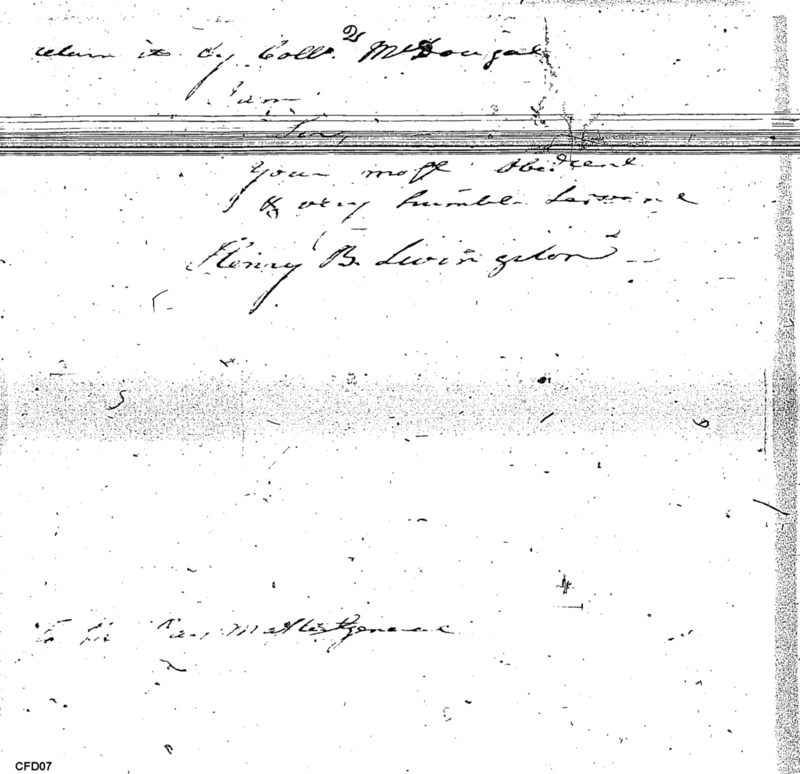 return it by Coll. McDougal
I am
Sir,
Your most Obedient
& very humble Servant
Henry B. Livingston
To
CFD07